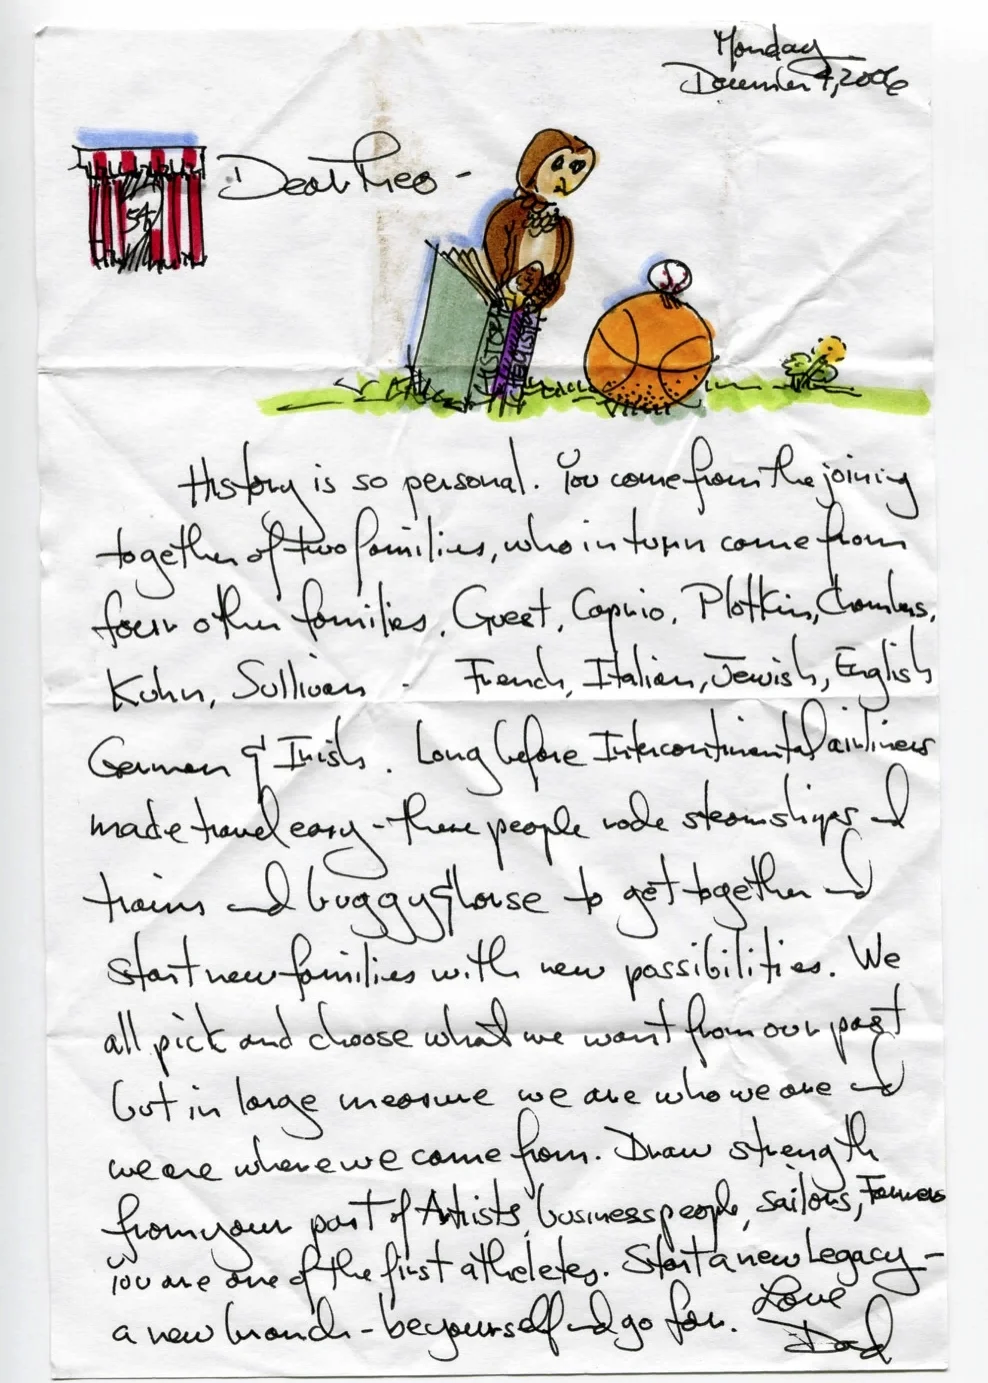 Monday
December 4, 2006
54¢
Dear Theo -
HISTORY
History is so personal. You come from the joining
together of two families, who in turn come from
four other families. Guest, Caprio, Plotkin, Chambers,
Kuhn, Sullivan - French, Italian, Jewish, English
German & Irish. Long before Intercontinental airliners
made travel easy - these people rode steamships and
trains and buggy & horse to get together and
start new families with new possibilities. We
all pick and choose what we want from our past
but in large measure we are who we are and
we are where we come from. Draw strength
from your past of Artists, business people, sailors, Farmers
You are one of the first atheletes. Start a new Legacy -
a new branch - be yourself and go far. Love
Dad